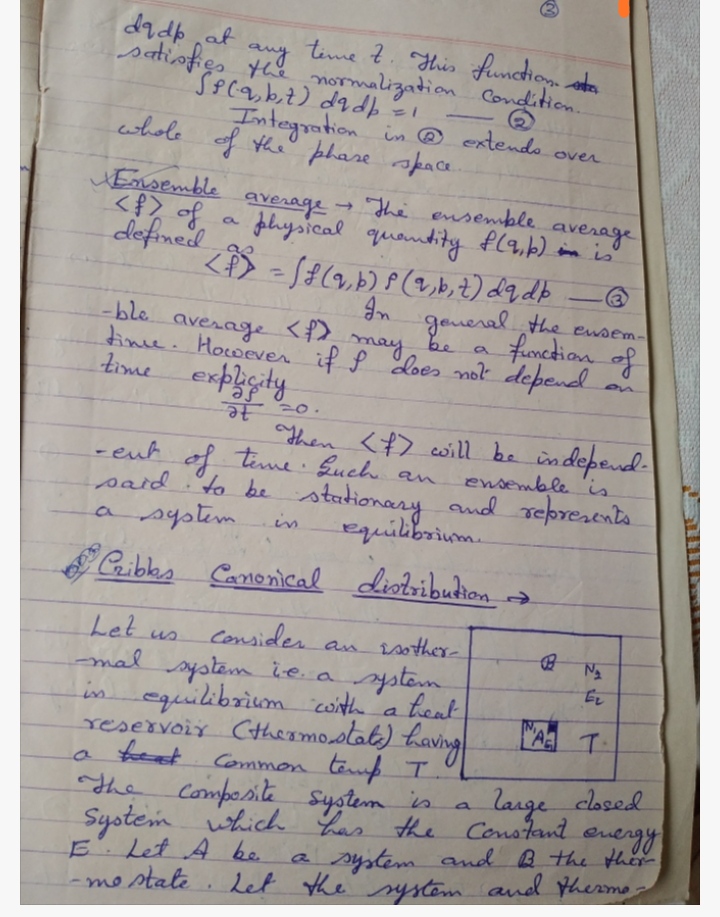 ③
dqdp at any time t. This function
satisfies the normalization condition.
∫ρ(q,p,t) dqdp = 1 — ②
Integration in ② extends over
whole of the phase space.
Ensemble average → The ensemble average
<f> of a physical quantity f(q,p) is
defined as
<f> = ∫f(q,p) ρ(q,p,t) dqdp — ③
In general the ensem-
-ble average <f> may be a function of
time. However if ρ does not depend on
time explicity
∂ρ/∂t = 0.
Then <f> will be independ-
-ent of time. Such an ensemble is
said to be stationary and represents
a system in equilibrium.
Gibbs Canonical distribution →
Let us consider an isother-
-mal system i.e. a system
in equilibrium with a heat
reservoir (thermostate) having
a common temp T.
B N2
E2
N1 A E1 T
The composite system is a large closed
system which has the constant energy
E. Let A be a system and B the ther-
-mostate. Let the system and thermo-